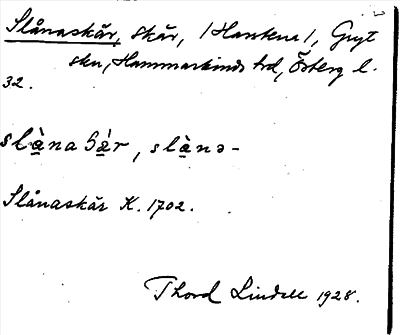 Slånaskär, skär, /Harstena/, Gryt
skn, Hammarkinds hd, Österg. l.
32.
slàna⁠ʃár, slànə-
Slånaskär K. 1702.
Thord Lindell 1928.